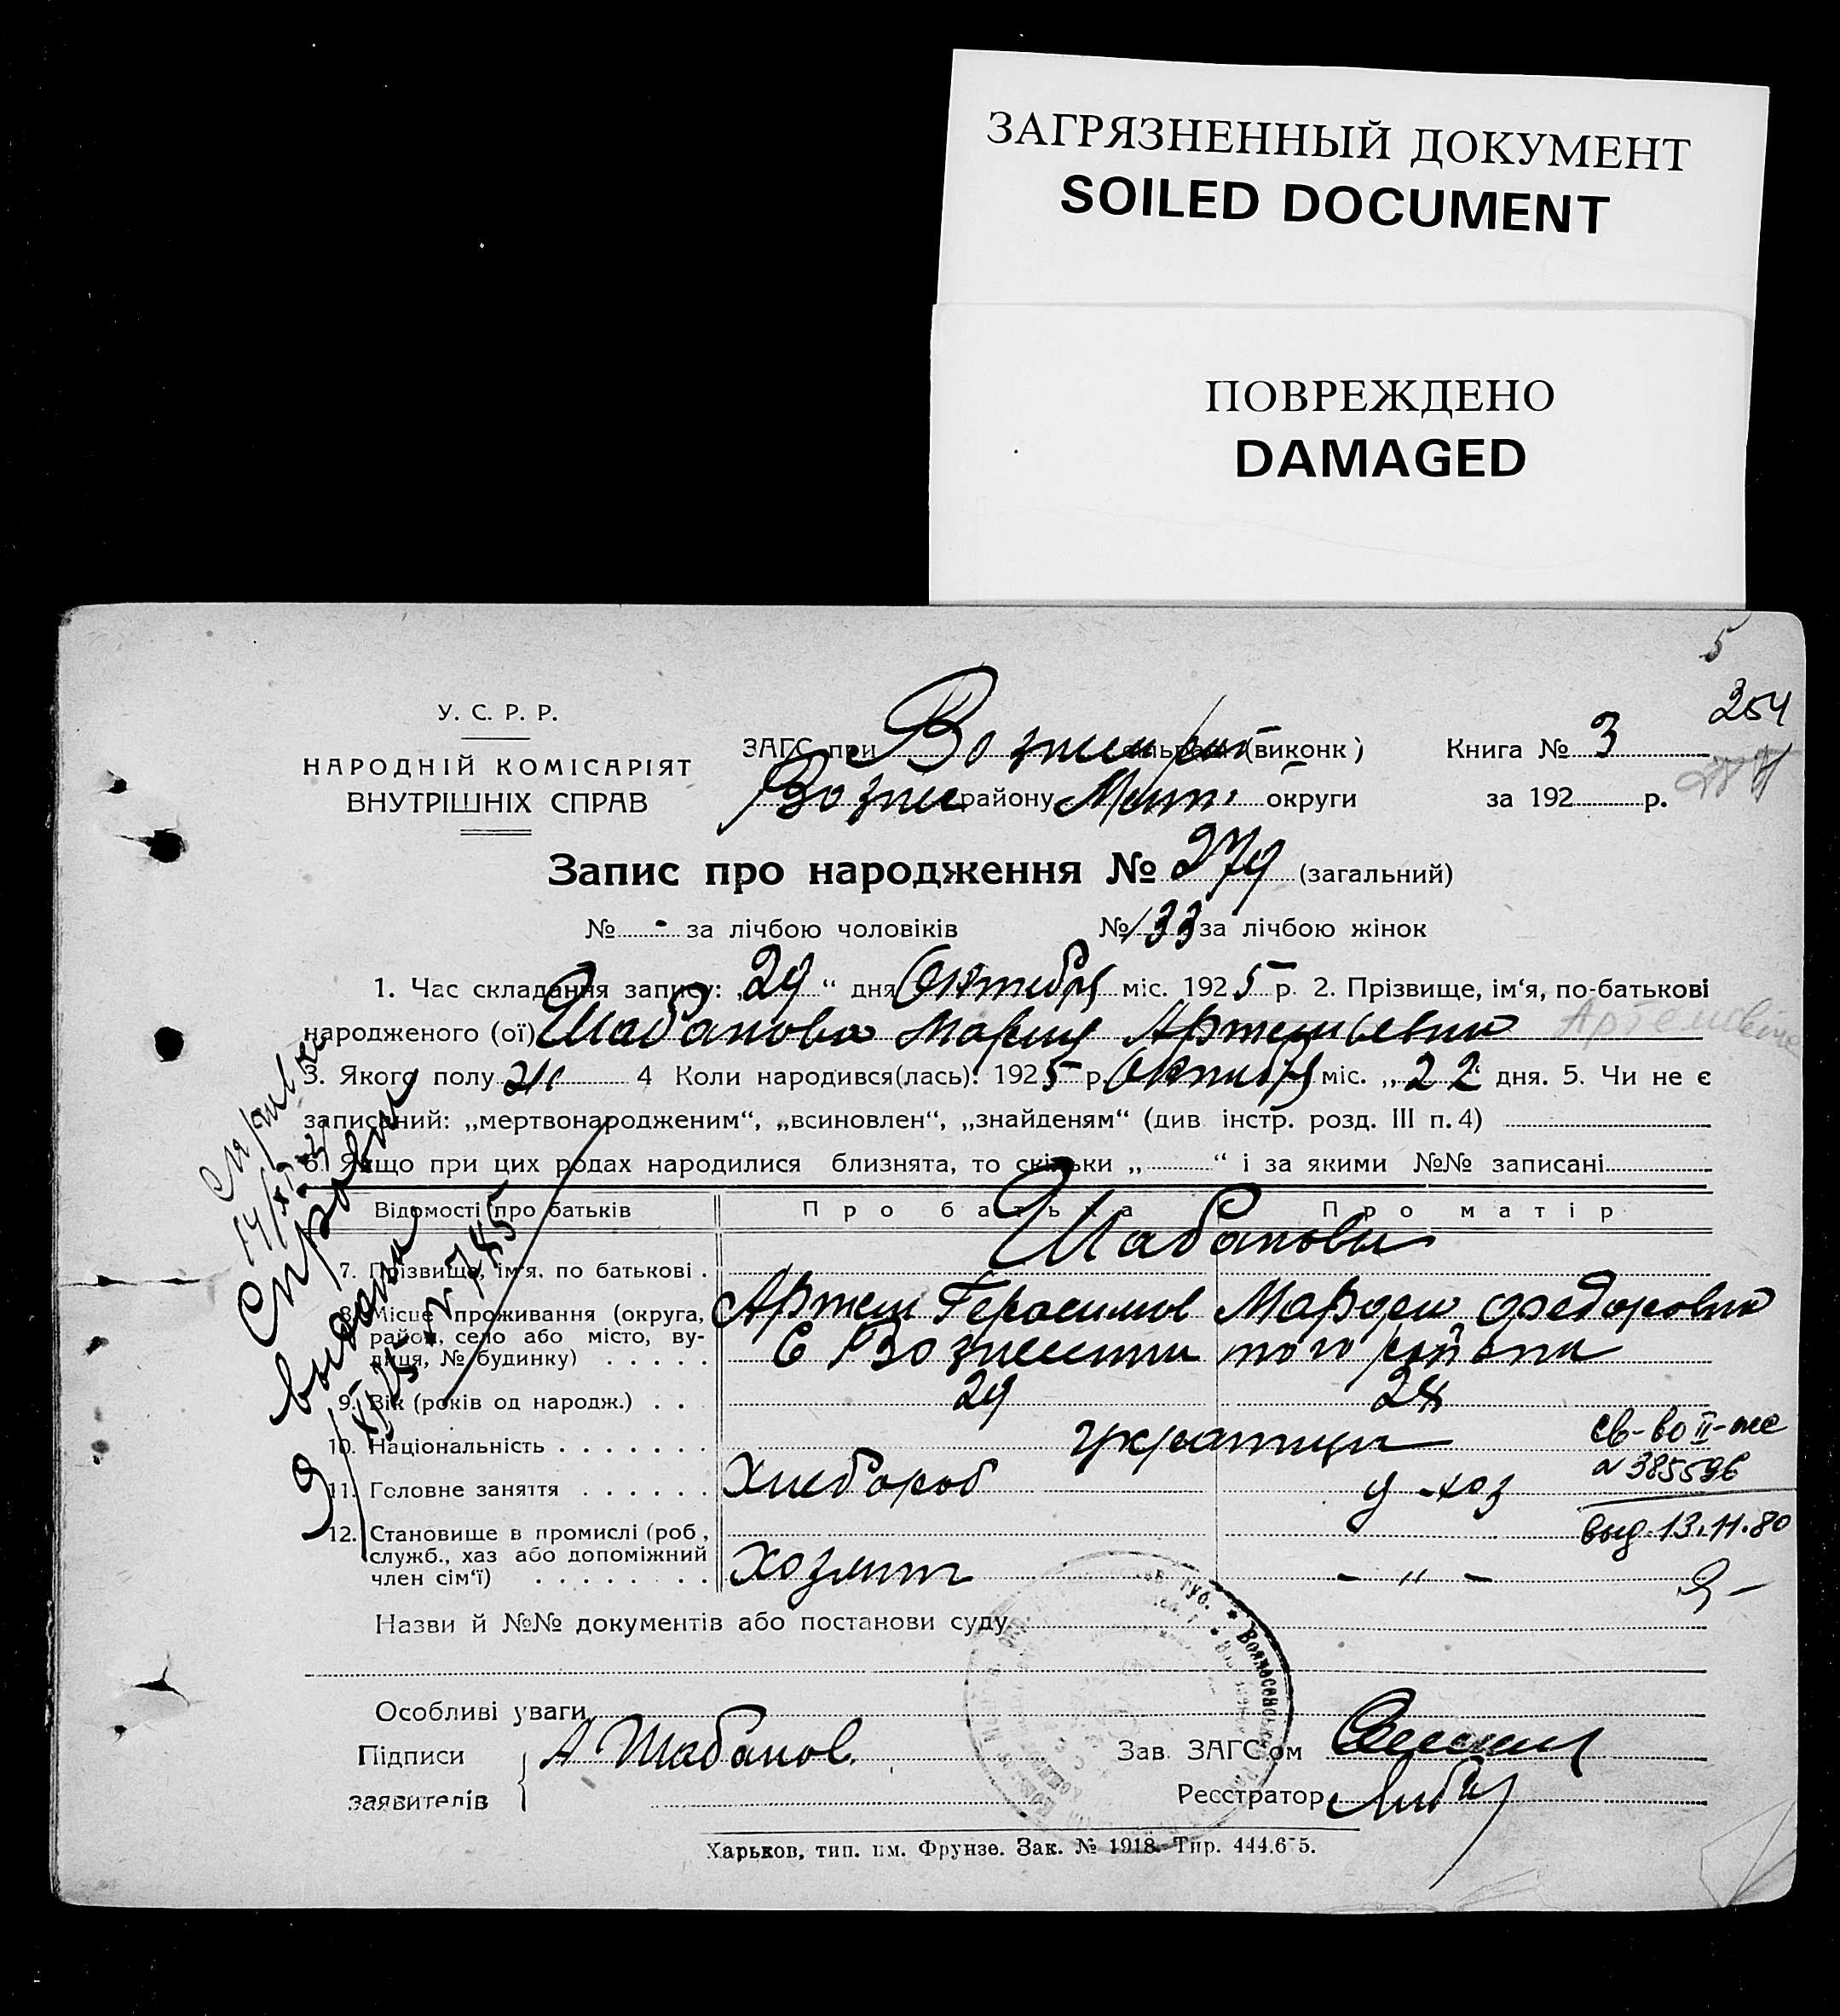 ЗАГРЯЗНЕННЫЙ ДОКУМЕНТ
SOILED DOCUMENT
ПОВРЕЖДЕНО
DAMAGED
5
254
У. С. Р. Р.
НАРОДНІЙ КОМІСАРІЯТ
ВНУТРІШНІХ СПРАВ
ЗАГС при (виконк)
Книга № 3
района Мелит. округи
за 192 р.
Запис про народження № 279 (загальний)
№ - за лічбою чоловіків № 133 за лічбою жінок
1. Час складання запису: „29“ дня Октября міс. 1925 р. 2. Прізвище, ім‘я, по-батькові
народженого (ої) Шабанова Мария Артемьевна
3. Якого полу 4 Коли народився(лась): 1925 р. Октября міс. „22“ дня. 5. Чи не є
записаний: „мертвонародженим“, „всиновлен“, „знайденям“ (див. інстр. розд. III п. 4)
6. Якщо при цих родах народилися близнята, то скільки „ “ і за якими №№ записані
Відомості про батьків Про батька Про матір
Шабановы
7. Прізвище, ім‘я, по батькові
Артем Герасимов Федоровна
8. Місце проживання (округа, район, село або місто, вулиця, № будинку)
С Вознесенки того района
9. Вік (років од народж.) 29 28
10. Національність украинцы
св-во II-ое
№ 385596
11. Головне заняття Хлебороб д-хоз
выд. 13.11.80
12. Становище в промислі (роб., служб., хаз або допоміжний член сім‘ї)
Хозяин - " -
Назви й №№ документів або постанови суду
Особливі уваги
Підписи
заявителів
А Шабанов.
Зав. ЗАГС‘ом
Реєстратор
Харьков, тип. им. Фрунзе. Зак. № 1918. Тир. 444.675.
Справка
выдана